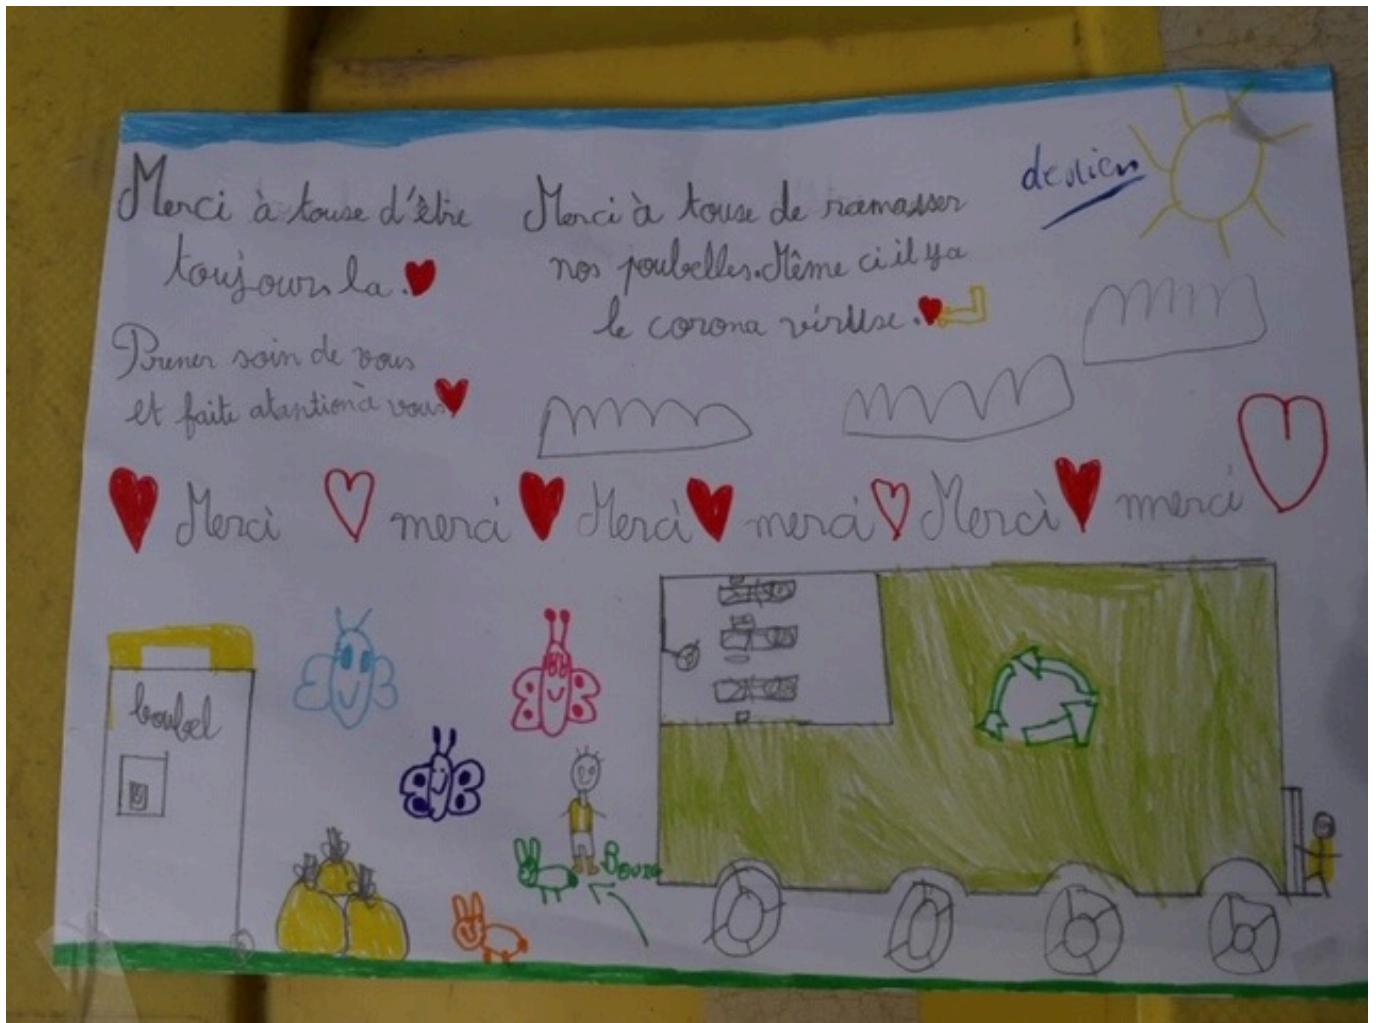 Merci à touse d'être
toujours la.
Prener soin de vous
et faite atantion à vous
Merci à touse de ramasser
nos poubelles. Même ci il ya
le corona viruse.
Merci merci Merci merci Merci merci
boubel